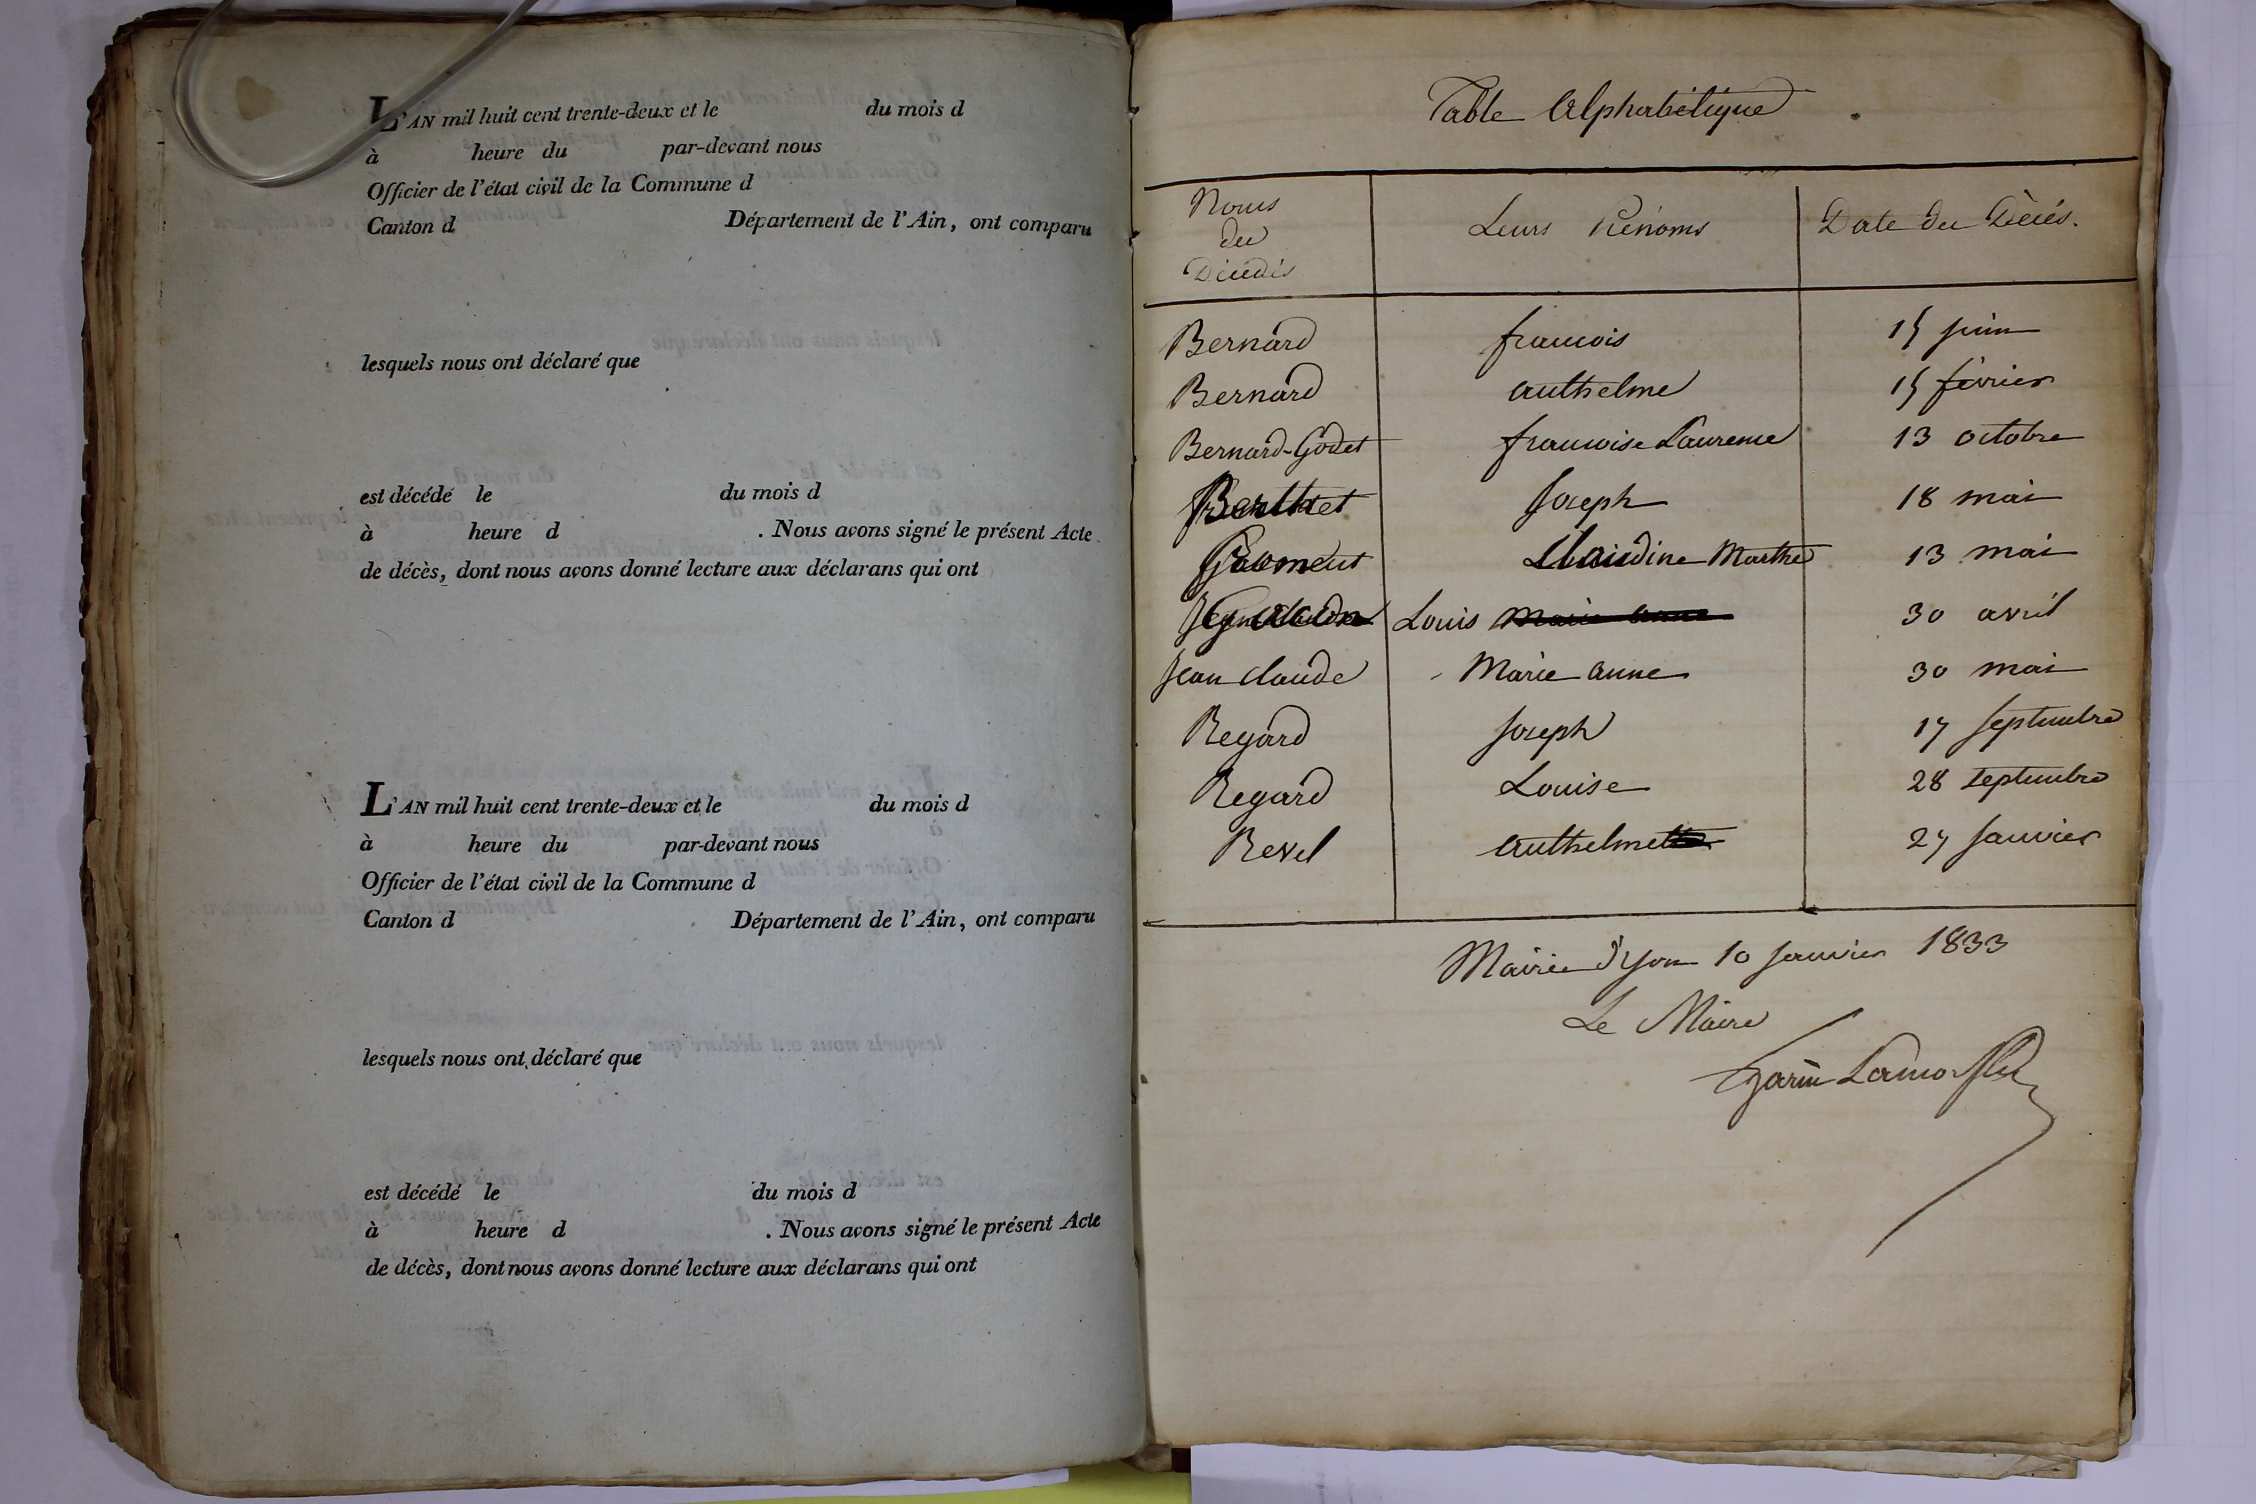 L'AN mil huit cent trente-deux et le du mois d
à heure du par-devant nous
Officier de l'état civil de la Commune d
Canton d Département de l'Ain, ont comparu
lesquels nous ont déclaré que
est décédé le du mois d
à heure d . Nous avons signé le présent Acte
de décès, dont nous avons donné lecture aux déclarans qui ont
L'AN mil huit cent trente-deux et le du mois d
à heure du par-devant nous
Officier de l'état civil de la Commune d
Canton d Département de l'Ain, ont comparu
lesquels nous ont déclaré que
est décédé le du mois d
à heure d . Nous avons signé le présent Acte
de décès, dont nous avons donné lecture aux déclarans qui ont
Table Alphabétique
Noms
Leurs Prénoms Date du Décés.
Bernard francois 15 juin
Bernard anthelme 15 février
Bernard-Godet francoise Laurence 13 octobre
Berthet Joseph 18 mai
Claudine Marthe 13 mai
Louis 30 avril
Jean claude Marie anne 30 mai
Regard Joseph 17 septembre
Regard Louise 28 septembre
Revel anthelme 27 Janvier
Mairie d'yon 10 Janvier 1833
Le Maire